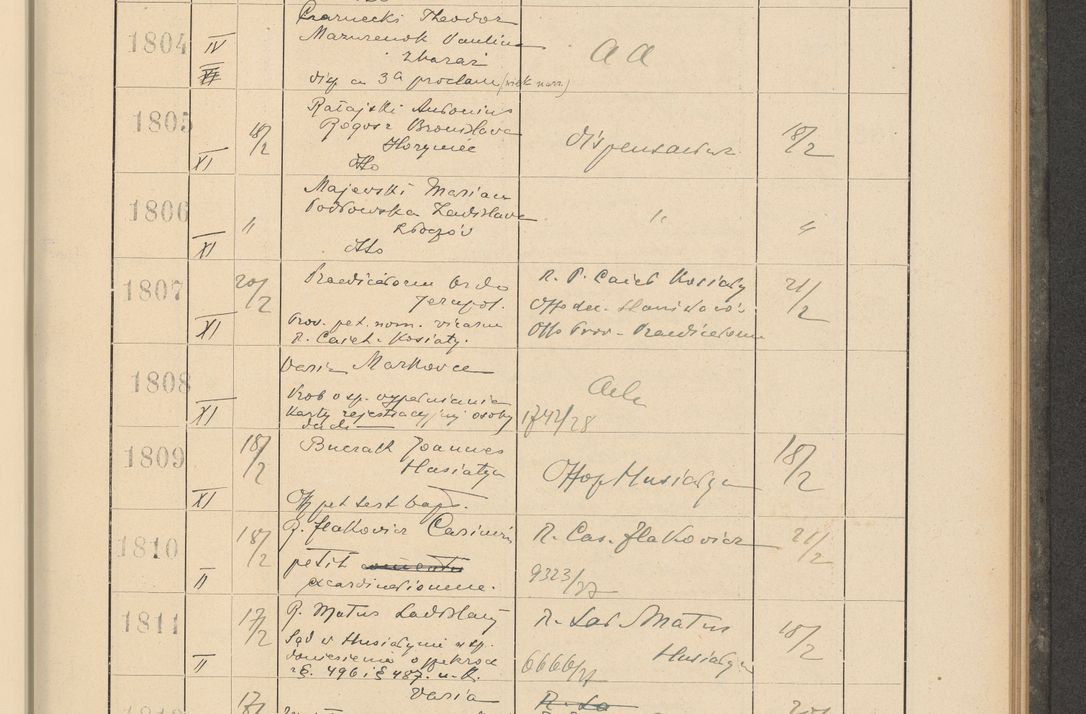 1804
IV
XI
Czarnecki Theodor
Mazurenok Paulina
Zbaraż
disp a 3ª proclam
aa
1805
18/2
XI
Ratajski Antonius
Rogosz Bronislava
Horyniec
dtto
dispensantur
18/2
1806
"
XI
Majewski Marian
Podkowska Ladislava
Złoczów
dtto
"
"
1807
20/2
XI
Praedicatorum Ordo
Jezupol.
Prov. pet. nom. vicarium
R. Cajet. Kosiaty.
R. P. Cajet Kosiaty
Offo dec. Stanislavov.
Offo Prov. Praedicatorum
21/2
1808
XI
Varia Markovce
Prob o sp. wypełniania
Karty rejestracyjnej osoby
duch
Acta
1742/28
1809
18/2
XI
Bucratk Joannes
Husiatyn
Off pet test bapt.
Offop Husiatyn
18/2
1810
18/2
II
R. Flakowicz Casimir
petit
excardinationem.
R. Cas. Flakowicz
9323/27
21/2
1811
17/2
II
R. Matus Ladislaus
Sąd w Husiatynie w sp.
doniesienia o przekrocz
z §. 496 i § 487. u. k.
R. Lad Matus
Husiatyn
6666/27
18/2
Varia
R. La